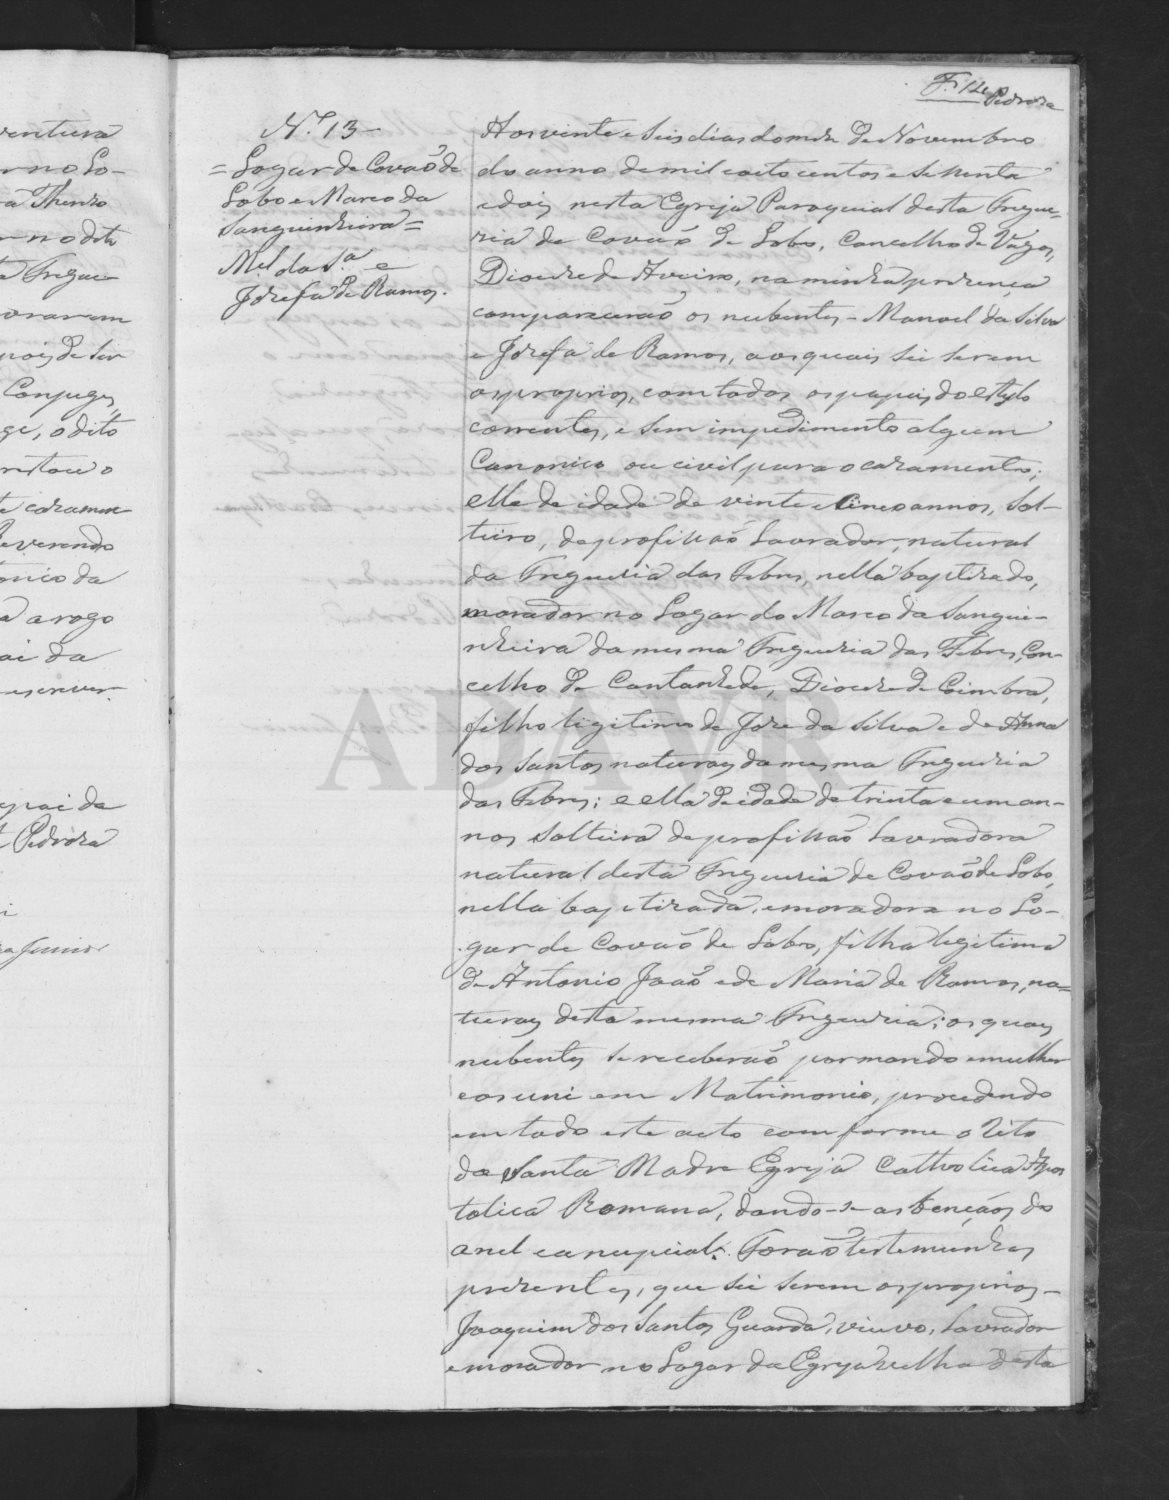 F. 12 Pedroza
N.º 13 -
= Logar de Covaõ de
Lobo e Marco da
Sanguinheira =
M.el da S.a e
Josefa de Ramos.
Aos vinte e seis dias do mez de Novembro
do anno de mil oito centos e settenta
e dois nesta Egreja Paroquial desta Fregue-
zia de Covaõ de Lobo, Concelho de Vagos,
Diocese de Aveiro, na minha prezença
comparecerão os nubentes - Manoel da Silva
e Josefa de Ramos, aos quais sei serem
os proprios, com todos os papeis do estylo
correntes, e sem impedimento algum
Canonico ou civil para o cazamento;
elle de idade de vinte e cinco annos, Sol-
teiro, de profissaõ Lavrador, natural
da Freguezia das Febres, nella baptizado,
morador no Logar do Marco da Sangui-
nheira da mesma Freguezia das Febres, Con-
celho de Cantanhede, Diocese de Coimbra,
filho legitimo de Jose da Silva e de Anna
dos Santos naturaes da mesma Freguezia
das Febres; e ella de idade de trinta e um an-
nos solteira de profissaõ Lavradora
natural desta Freguezia de Covaõ de Lobo,
nella baptizada, e moradora no Lo-
gar de Covaõ de Lobo, filha legitima
de Antonio Joaõ e de Maria de Ramos, na=
turaes desta mesma Freguezia; os quaes
nubentes se receberaõ por marido e mulher
e os uni em Matrimonio, procedendo
em todo este acto conforme o Rito
da Santa Madre Egreja Catholica Apos
tolica Romana, dando-se as bençaõs do
anel e a nupcial. Foraõ testemunhas
prezentes, que sei serem os proprios -
Joaquim dos Santos Guarda, viuvo, Lavrador
e morador no Logar da Egreja velha desta
entura
r no Lo-
a Thereza
no dito
Fregue
oraram
pois de ser
Conjuges,
ge, o dito
cazamen
Reverendo
onio da
a a rogo
ai da
escrever
pai da
Pedroza
Junior
ADAVR